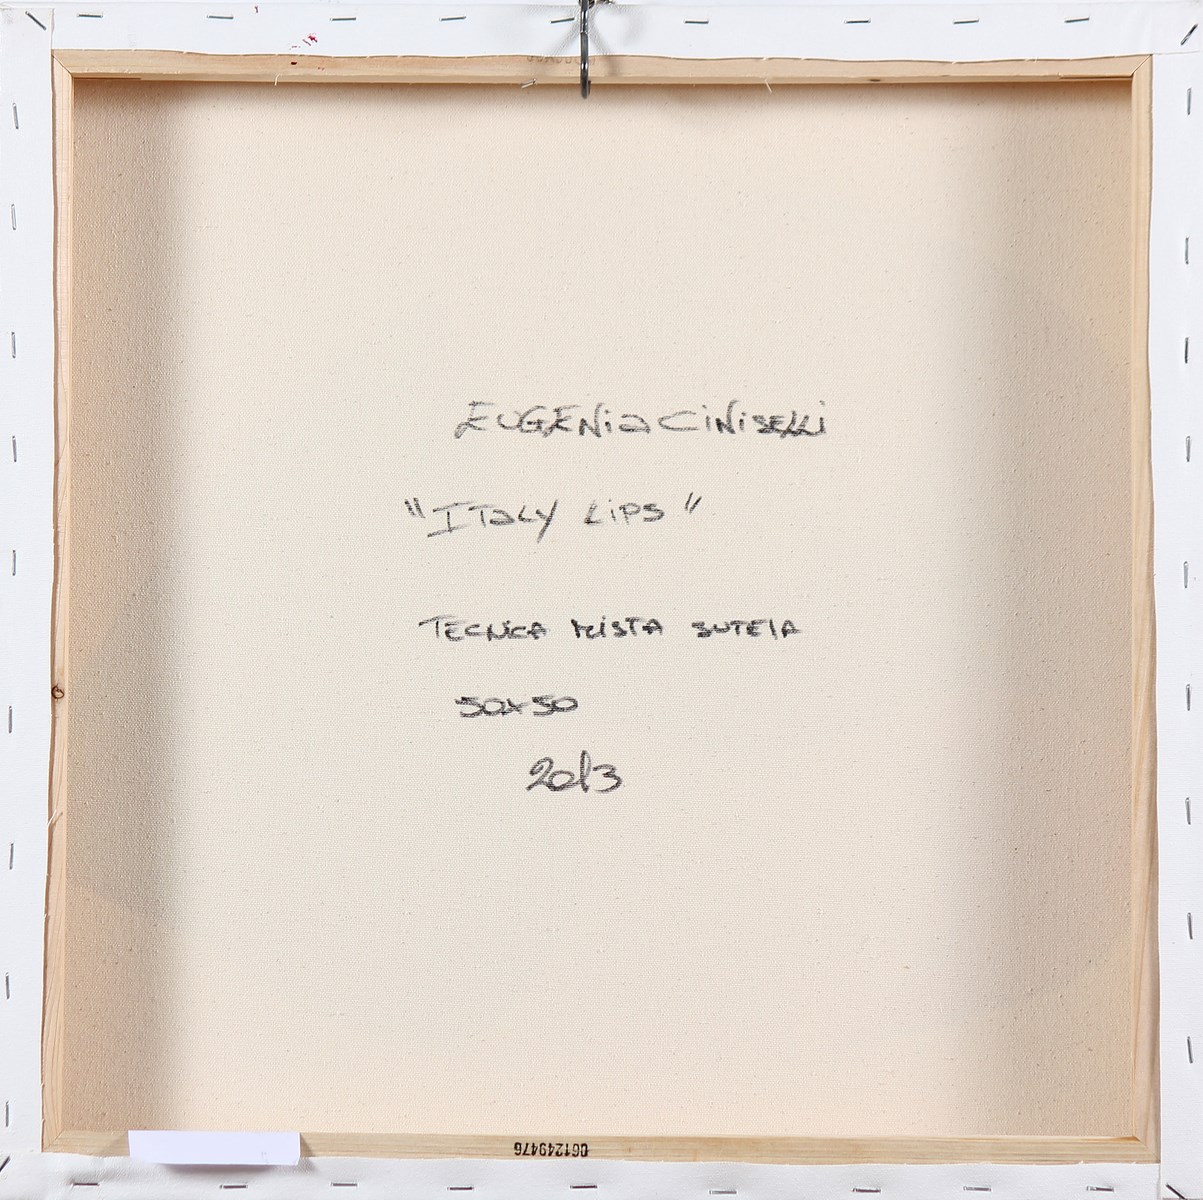 EUGENIA CINISELLI
"ITALY LIPS"
TECNICA MISTA SUTELA
50x50
2013
061249476